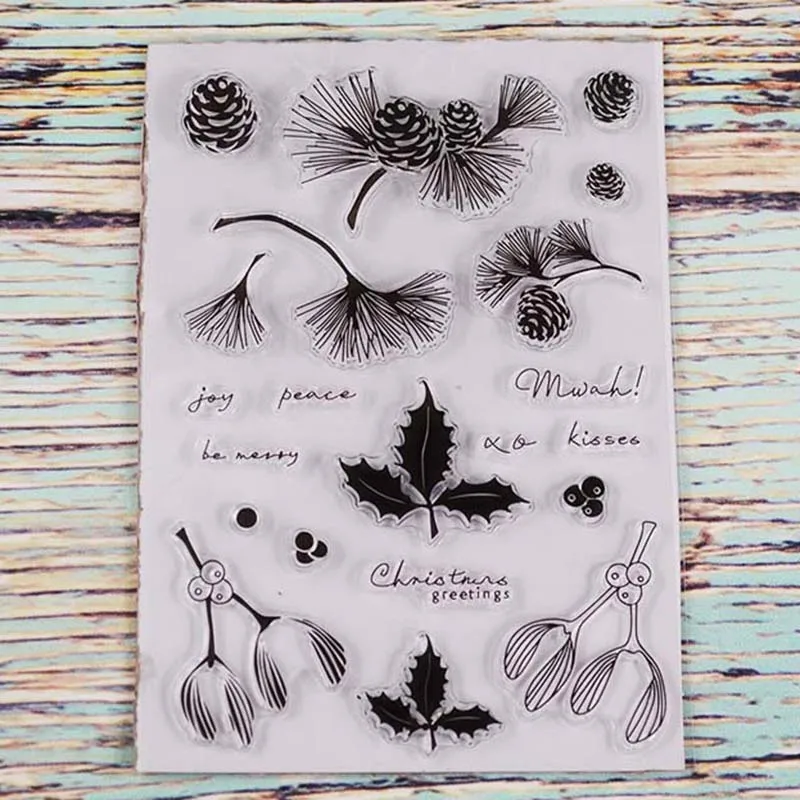 joy peace
Mwah!
be merry
xo kisses
Christmas
greetings